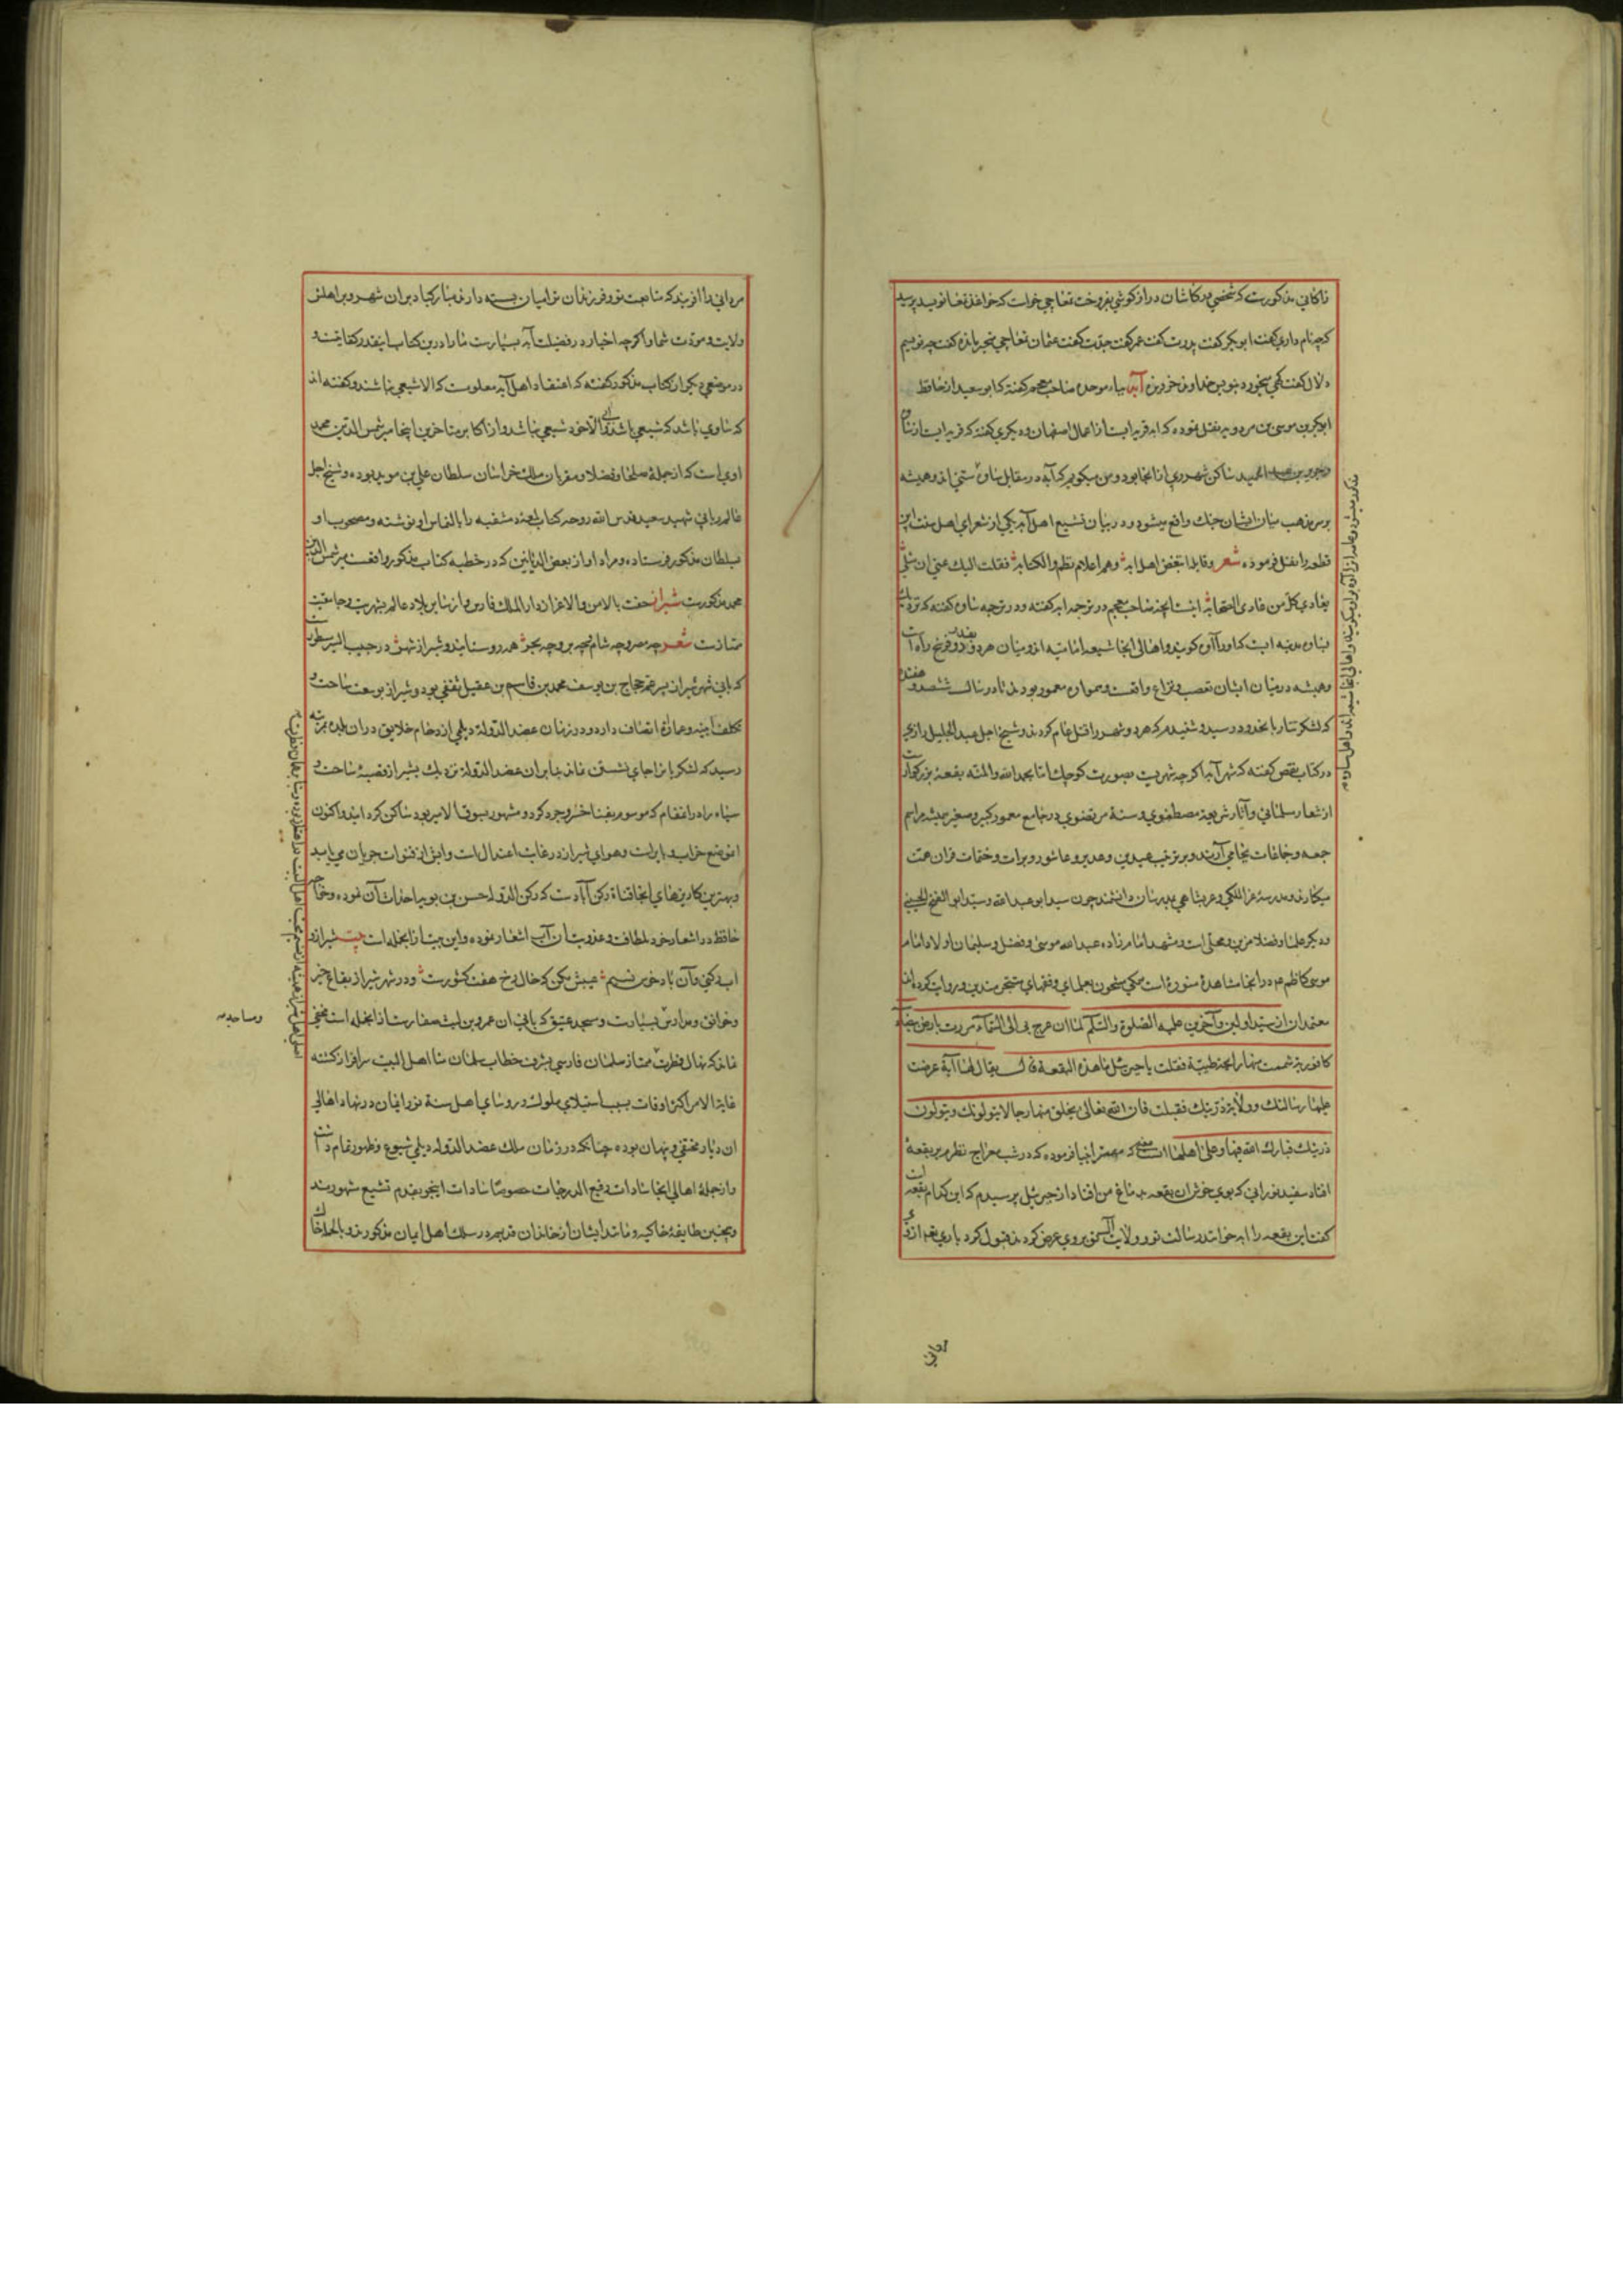 زاکانی مذکورست که شخصی در کاشان درازگوشی بفروخت تمغاچی خواست که خواهد تمغا نویسد پرسید
که چه نام داری گفت ابوبکر گفت پدرت گفت عمر گفت جدّت گفت عثمان تمغاچی متحیر بماند گفت چه نویسیم
دلال گفت بنویس خداوند خر و بزه آبه بباء موحده صاحب معجم گفته که ابو سعید از حافظ
ابوبکر بن موسی بن مردویه نقل نموده که ابه قریه ایست از اعمال اصفهان و دیگری گفته که قریه ایست از
الحمید ساکن شهر ری از انجا بود و من میگویم که آبه در مقابل ساوه سنی اند و همیشه
بر سر مذهب میان ایشان جنك واقع میشود و در بیان تشیع اهل آبه یکی از شعرای اهل سنت این
قطعه را نقل فرموده شعر و قایلة اتبغض اهل ابه و هم اعلام نظم و الکتابه فقلت الیك عنی ان مثلی
یعادی کل من عادی الصحابه اینست آنچه صاحب معجم در ترجمه ابه گفته و در ترجمه ساوه گفته که نزدیك
بساوه مدینه ایست که او را آوه گویند و اهالی انجا شیعه امامیه اند و میان هر دو دو فرسخ راه است
و همیشه در میان ایشان تعصب و نزاع واقعست و همواره معمور بودند تا در سال ششصد و هفده
که لشکر تتار بانحدود رسید و شنیدم که هر دو شهر را قتل عام کردند و شیخ اجل عبد الجلیل رازی
در کتاب نقض گفته که شهر آبه اگر چه شهریست بصورت کوچك اما بحمد الله و المنه بقعه بزرگوار
از شعار مسلمانی و آثار شریعت مصطفوی و سنت مرتضوی در جامع معمور کبیر و صغیر همیشه مراسم
جمعه و جماعات بجای آرند و بر ترتیب عیدین و غدیر و عاشورا و برات و ختمات قران همت
میگمارند و مدرسه عز الملکی و عربشاهی مدرسان دانشمند چون سید ابو عبد الله و سید ابو الفتح الحسینی
و دیگر علما و فضلا مزین و محلی است و مشهد امامزاده عبد الله موسی و فضل و سلیمان اولاد امام
موسی کاظم عم در انجا مشاهده منوره است مشحون بعلمای و فقهای متبحر متدین و روایت کرده اند
معتمدان از سید اولین و آخرین علیه الصلوة و السلم لما ان عرج بی الی السماء مررت بارض بیضاء
کافوریة شممت منها رایحة طیبة فقلت یا جبرئیل ما هذه البقعة قال یقال لها آبة عرضت
علیها رسالتك و ولایة ذریتك فقبلت فان الله تعالی یخلق منها رجالا یتولونك و یتولون
ذریتك فبارك الله فیها و علی اهلها مهتر انبیا فرموده که در شب معراج نظرم بر بقعه
افتاد سفید نورانی که بوی خوش ان بقعه بدماغ من افتاد از جبرئیل پرسیدم که این کدام بقعه است
گفت این بقعه را ابه خوانند رسالت تو و ولایت بروی عرض کردند قبول کرد باری تعم ازو
مردانی
مردانی را آفریند که متابعت تو و فرزندان تو را میان بسته دارند مبارکباد بران شهر و بر اهلش
ولایت و مودت شما و اگر چه اخبار در فضیلت آبه بسیارست ما را درین کتاب اینقدر کفایتست و
در موضعی دیگر از کتاب مذکور گفته که اعتقاد اهل آبه معلومست که الا شیعی نباشند و گفته اند
که ساوی باشد که شیعی باشد و آبی الا خود شیعی نباشد و از اکابر متاخرین اینجا میر شمس الدین محمد
اویست که از جمله صلحا و فضلا و مقربان ملك خراسان سلطان علی بن موید بوده و شیخ اجل
عالم ربانی شهید سعید قدس الله روحه کتاب لمعه دمشقیه را بالتماس او نوشته و مصحوب او
بسلطان مذکور فرستاده و مراد او از بعض الدیانین که در خطبه کتاب مذکور واقعست میر شمس الدین
محمد مذکورست شیراز حفت بالامن و الاعزاز دار الملك فارس و از سایر بلاد عالم بشهرت و جامعیت
ممتازست شعر چه مصر و چه شام و چه بر و چه بحر همه روستایند و شیراز شهر در حبیب السیر مسطورست
که بانی شهر شیراز پسر عم حجاج بن یوسف محمد بن قاسم بن عقیل ثقفی بود و شیراز بوسعت ساحت و
تکلف ابنیه و عمارة اتصاف دارد و در زمان عضد الدوله دیلمی ازدحام خلایق در ان بلده بمرتبه
رسید که لشکریانرا جای نشستن نماند بنابران عضد الدوله نزدیك بشیراز قصبه ساخت و
سپاه را در انمقام که موسوم بفنا خسرو جرد کرد و مشهور بسوق الامیر بود ساکن گردانید و اکنون
انموضع خراب و بایرست و هوای شیراز در غایت اعتدال است و ابش از قنوات جریان می یابد
و بهترین کاریزهای انجا قناة رکن آبادست که رکن الدوله حسن بن بویه احداث آن نموده و خواجه
حافظ در اشعار خود بلطافت و عذوبت آن آب اشعار نموده و این بیت از انجمله است بیت شیراز و
اب رکنی و آن باد خوش نسیم عیبش مکن که خال رخ هفت کشورست و در شهر شیراز بقاع خیر
و خوانق و مدارس بسیارست و مسجد عتیق که بانی ان عمرو بن لیث صفارست از انجمله است مخفی
نماند که نهال فطرت ممتاز سلمان فارسی بشرف خطاب سلمان منا اهل البیت سرافراز گشته
غایة الامر اکثر اوقات بسبب استیلای ملوك و روسای اهل سنة نور ایمان در نهاد اهالی
ان دیار مختفی و پنهان بوده چنانکه در زمان ملك عضد الدوله دیلمی شیوع و ظهور تمام داشت
و از جمله اهالی انجا سادات رفیع الدرجات خصوصا سادات اینجو بقدم تشیع مشهورند
و همچنین طایفه خاکیه و مانند ایشان از خاندان قدیم در سلك اهل ایمان مذکورند و بالجمله خاك
و مساجد